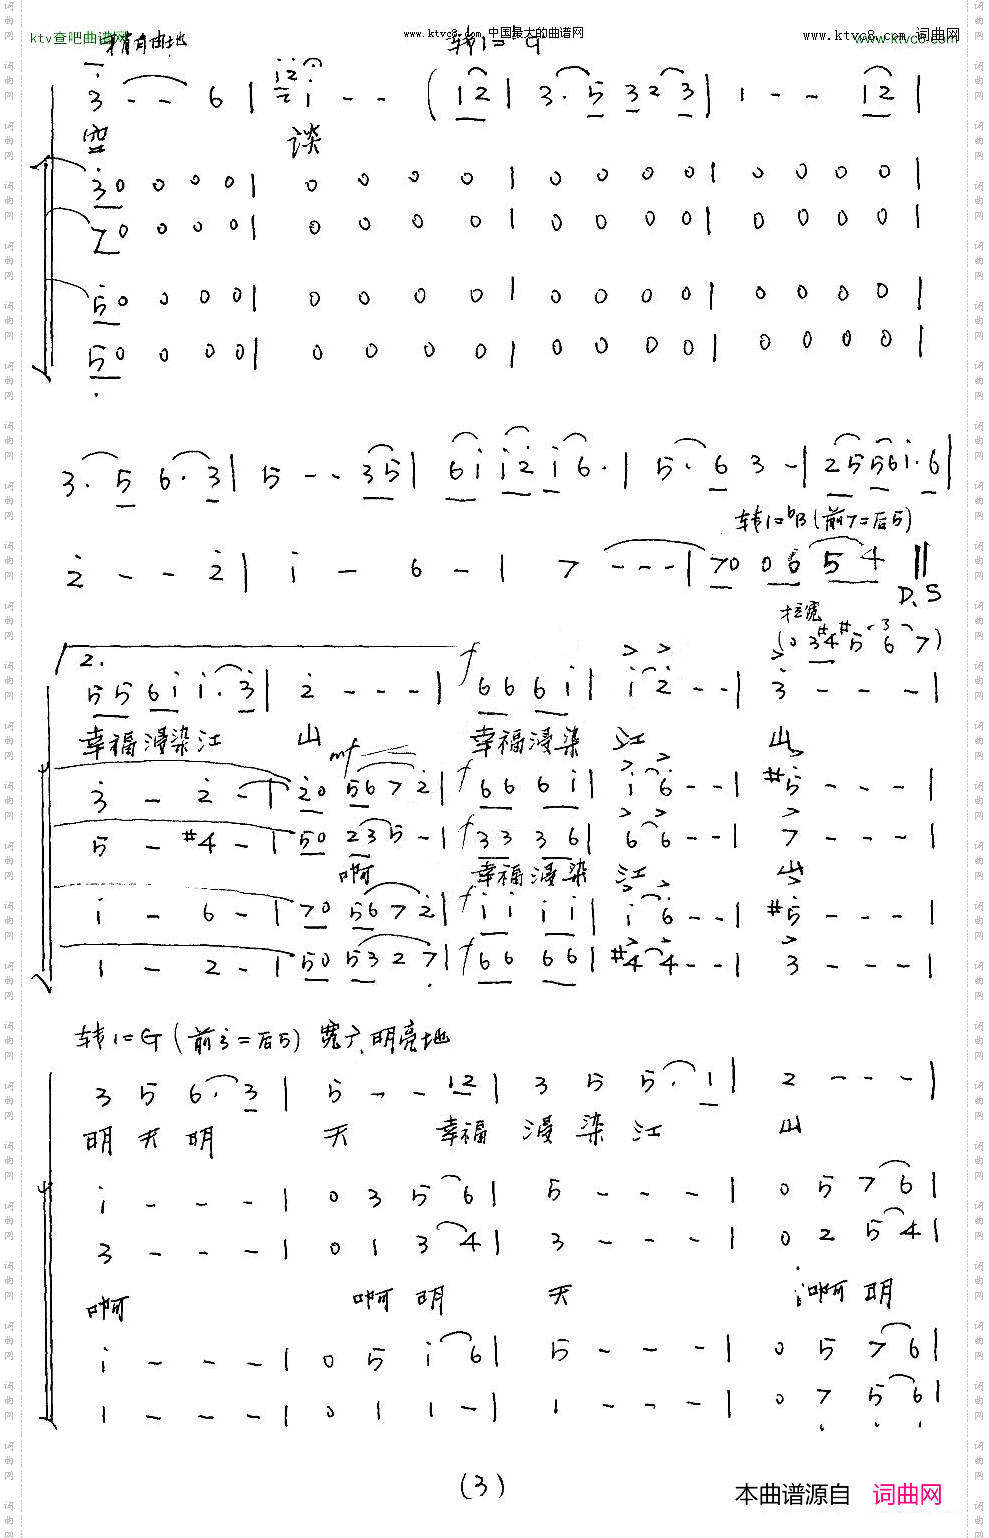 ktv查吧曲谱网 稍自由地 www.ktvc8.com 中国最大的曲谱网 转1=G www.ktvc8.com 词曲网
3 - - 6 | i - - ( 12 | 3. 5 32 3 | 1 - - 12 |
空 谈
30 0 0 0 | 0 0 0 0 | 0 0 0 0 | 0 0 0 0 |
70 0 0 0 | 0 0 0 0 | 0 0 0 0 | 0 0 0 0 |
50 0 0 0 | 0 0 0 0 | 0 0 0 0 | 0 0 0 0 |
50 0 0 0 | 0 0 0 0 | 0 0 0 0 | 0 0 0 0 |
3. 5 6. 3 | 5 - - 35 | 6i i2 i 6. | 5. 6 3 - | 25 56 i. 6 |
转1=bB (前7=后5)
2 - - 2 | i - 6 - | 7 - - - | 70 06 54 ||
D.S
拉宽
(0 3#4 #5 6 7)
2.
55 6i i. 3 | 2 - - - | f 66 6i | i 2 - - | 3 - - - |
幸福浸染江 山 幸福浸染 江 山
mf
3 - 2 - | 20 56 7 2 | f 66 6i | i 6 - - | #5 - - - |
5 - #4 - | 50 23 5 - | f 33 36 | 6 6 - - | 7 - - - |
啊 幸福浸染 江 山
i - 6 - | 70 56 7 2 | f ii ii | i 6 - - | #5 - - - |
1 - 2 - | 50 53 2 7 | f 66 66 | #4 4 - - | 3 - - - |
转1=G (前3=后5) 宽广、明亮地
3 5 6. 3 | 5 - - 12 | 3 5 5. 1 | 2 - - - |
明 天 明 天 幸福 浸 染 江 山
i - - - | 0 3 5 6 | 5 - - - | 0 5 7 6 |
3 - - - | 0 1 3 4 | 3 - - - | 0 2 5 4 |
啊 啊 明 天 啊 明
i - - - | 0 5 i 6 | 5 - - - | 0 5 7 6 |
1 - - - | 0 1 1 - | 1 - - - | 0 7 5 6 |
(3)
本曲谱源自 词曲网